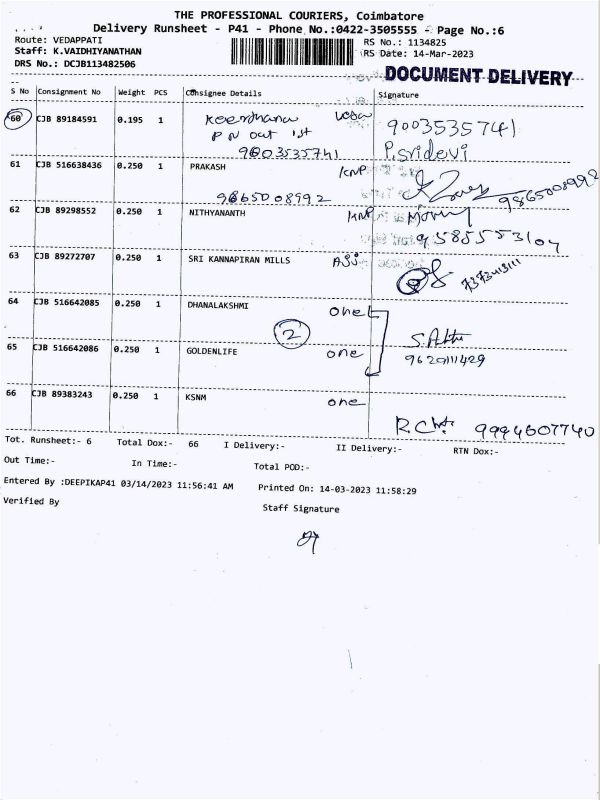 THE PROFESSIONAL COURIERS, Coimbatore
Delivery Runsheet - P41 - Phone No.:0422-3505555 - Page No.:6
Route: VEDAPPATI
RS No.: 1134825
Staff: K.VAIDHIYANATHAN
RS Date: 14-Mar-2023
DRS No.: DCJB113482506
DOCUMENT DELIVERY
S No Consignment No Weight PCS Consignee Details Signature
60 CJB 89184591 0.195 1 Keerthana
PN out 1st
9003535741
9003535741
P. Sridevi
61 CJB 516638436 0.250 1 PRAKASH KNP
9865008992
9865008992
62 CJB 89298552 0.250 1 NITHYANANTH KNP
9585553104
63 CJB 89272707 0.250 1 SRI KANNAPIRAN MILLS
64 CJB 516642085 0.250 1 DHANALAKSHMI one
2
65 CJB 516642086 0.250 1 GOLDENLIFE one
66 CJB 89383243 0.250 1 KSNM one
9994607740
Tot. Runsheet:- 6 Total Dox:- 66 I Delivery:- II Delivery:- RTN Dox:-
Out Time:- In Time:- Total POD:-
Entered By :DEEPIKAP41 03/14/2023 11:56:41 AM Printed On: 14-03-2023 11:58:29
Verified By Staff Signature